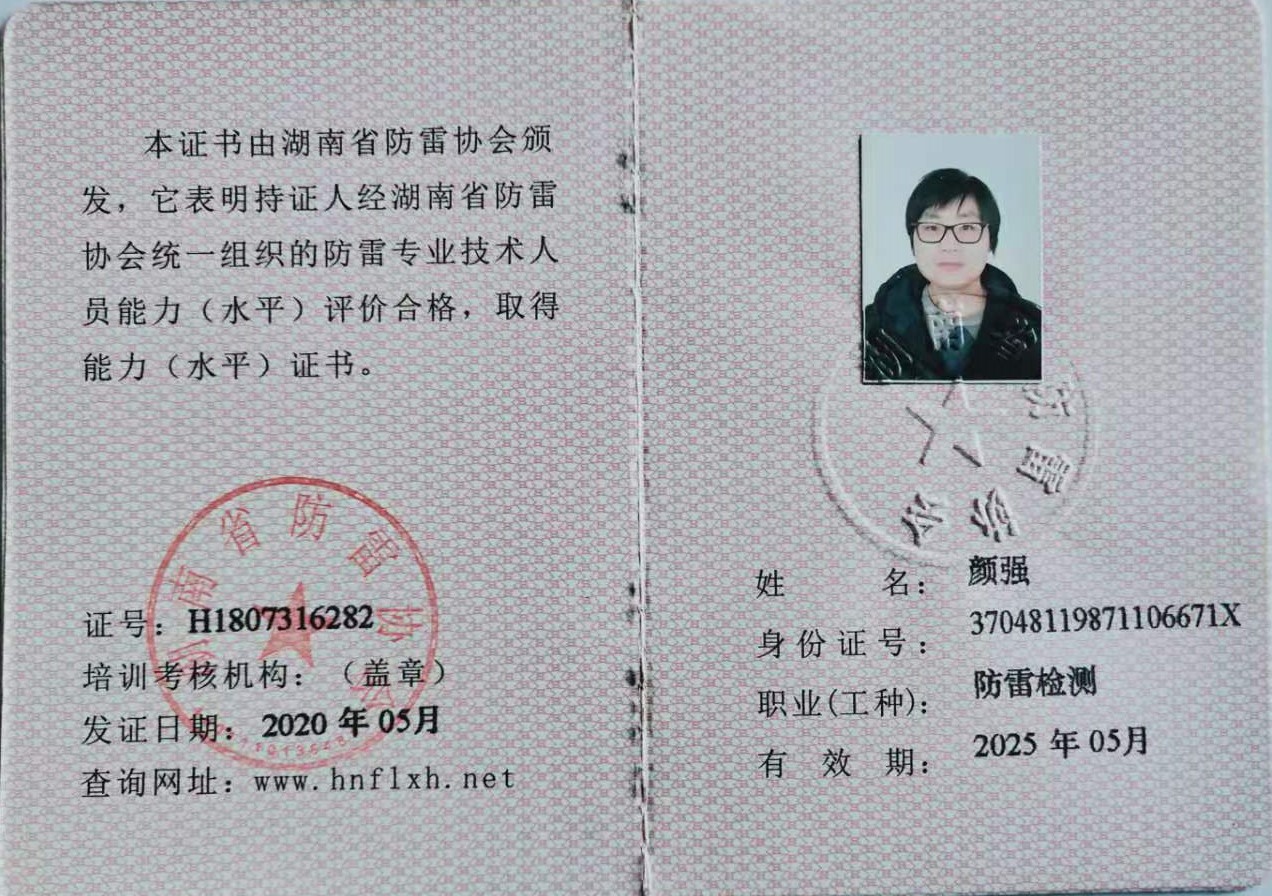 本证书由湖南省防雷协会颁
发，它表明持证人经湖南省防雷
协会统一组织的防雷专业技术人
员能力（水平）评价合格，取得
能力（水平）证书。
南省防雷协会
证号：H1807316282
培训考核机构：（盖章）
发证日期：2020 年 05月
查询网址：www.hnflxh.net
防雷协会
姓 名：颜强
身份证号：37048119871106671X
职业(工种)：防雷检测
有 效 期：2025 年 05月